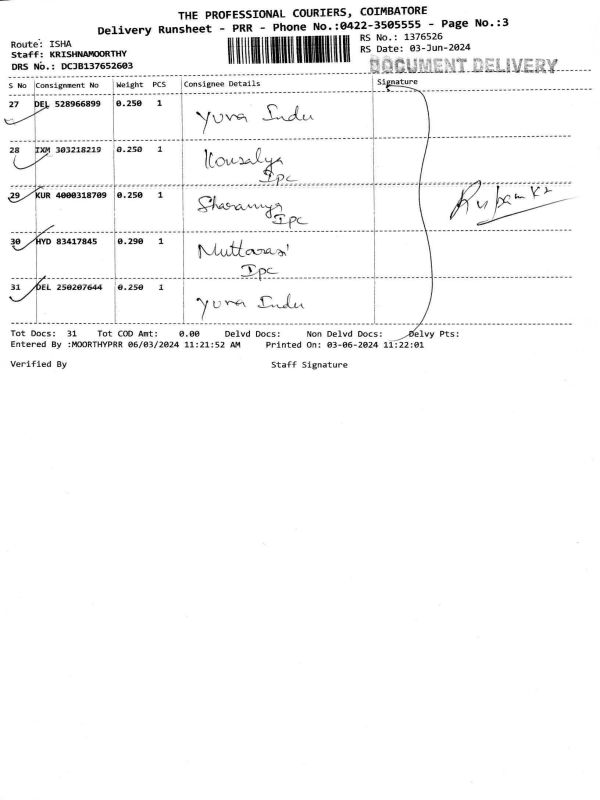 THE PROFESSIONAL COURIERS, COIMBATORE
Delivery Runsheet - PRR - Phone No.:0422-3505555 - Page No.:3
Route: ISHA
RS No.: 1376526
Staff: KRISHNAMOORTHY
RS Date: 03-Jun-2024
DRS No.: DCJB137652603
DOCUMENT DELIVERY
S No Consignment No Weight PCS Consignee Details Signature
27 DEL 528966899 0.250 1 Yuva Indu
28 IXM 303218219 0.250 1 Kousalya
Ipc
29 KUR 4000318709 0.250 1 Sharanya
Ipc
30 HYD 83417845 0.290 1 Muttarasi
Ipc
31 DEL 250207644 0.250 1 Yuva Indu
Tot Docs: 31 Tot COD Amt: 0.00 Delvd Docs: Non Delvd Docs: Delvy Pts:
Entered By :MOORTHYPRR 06/03/2024 11:21:52 AM Printed On: 03-06-2024 11:22:01
Verified By Staff Signature